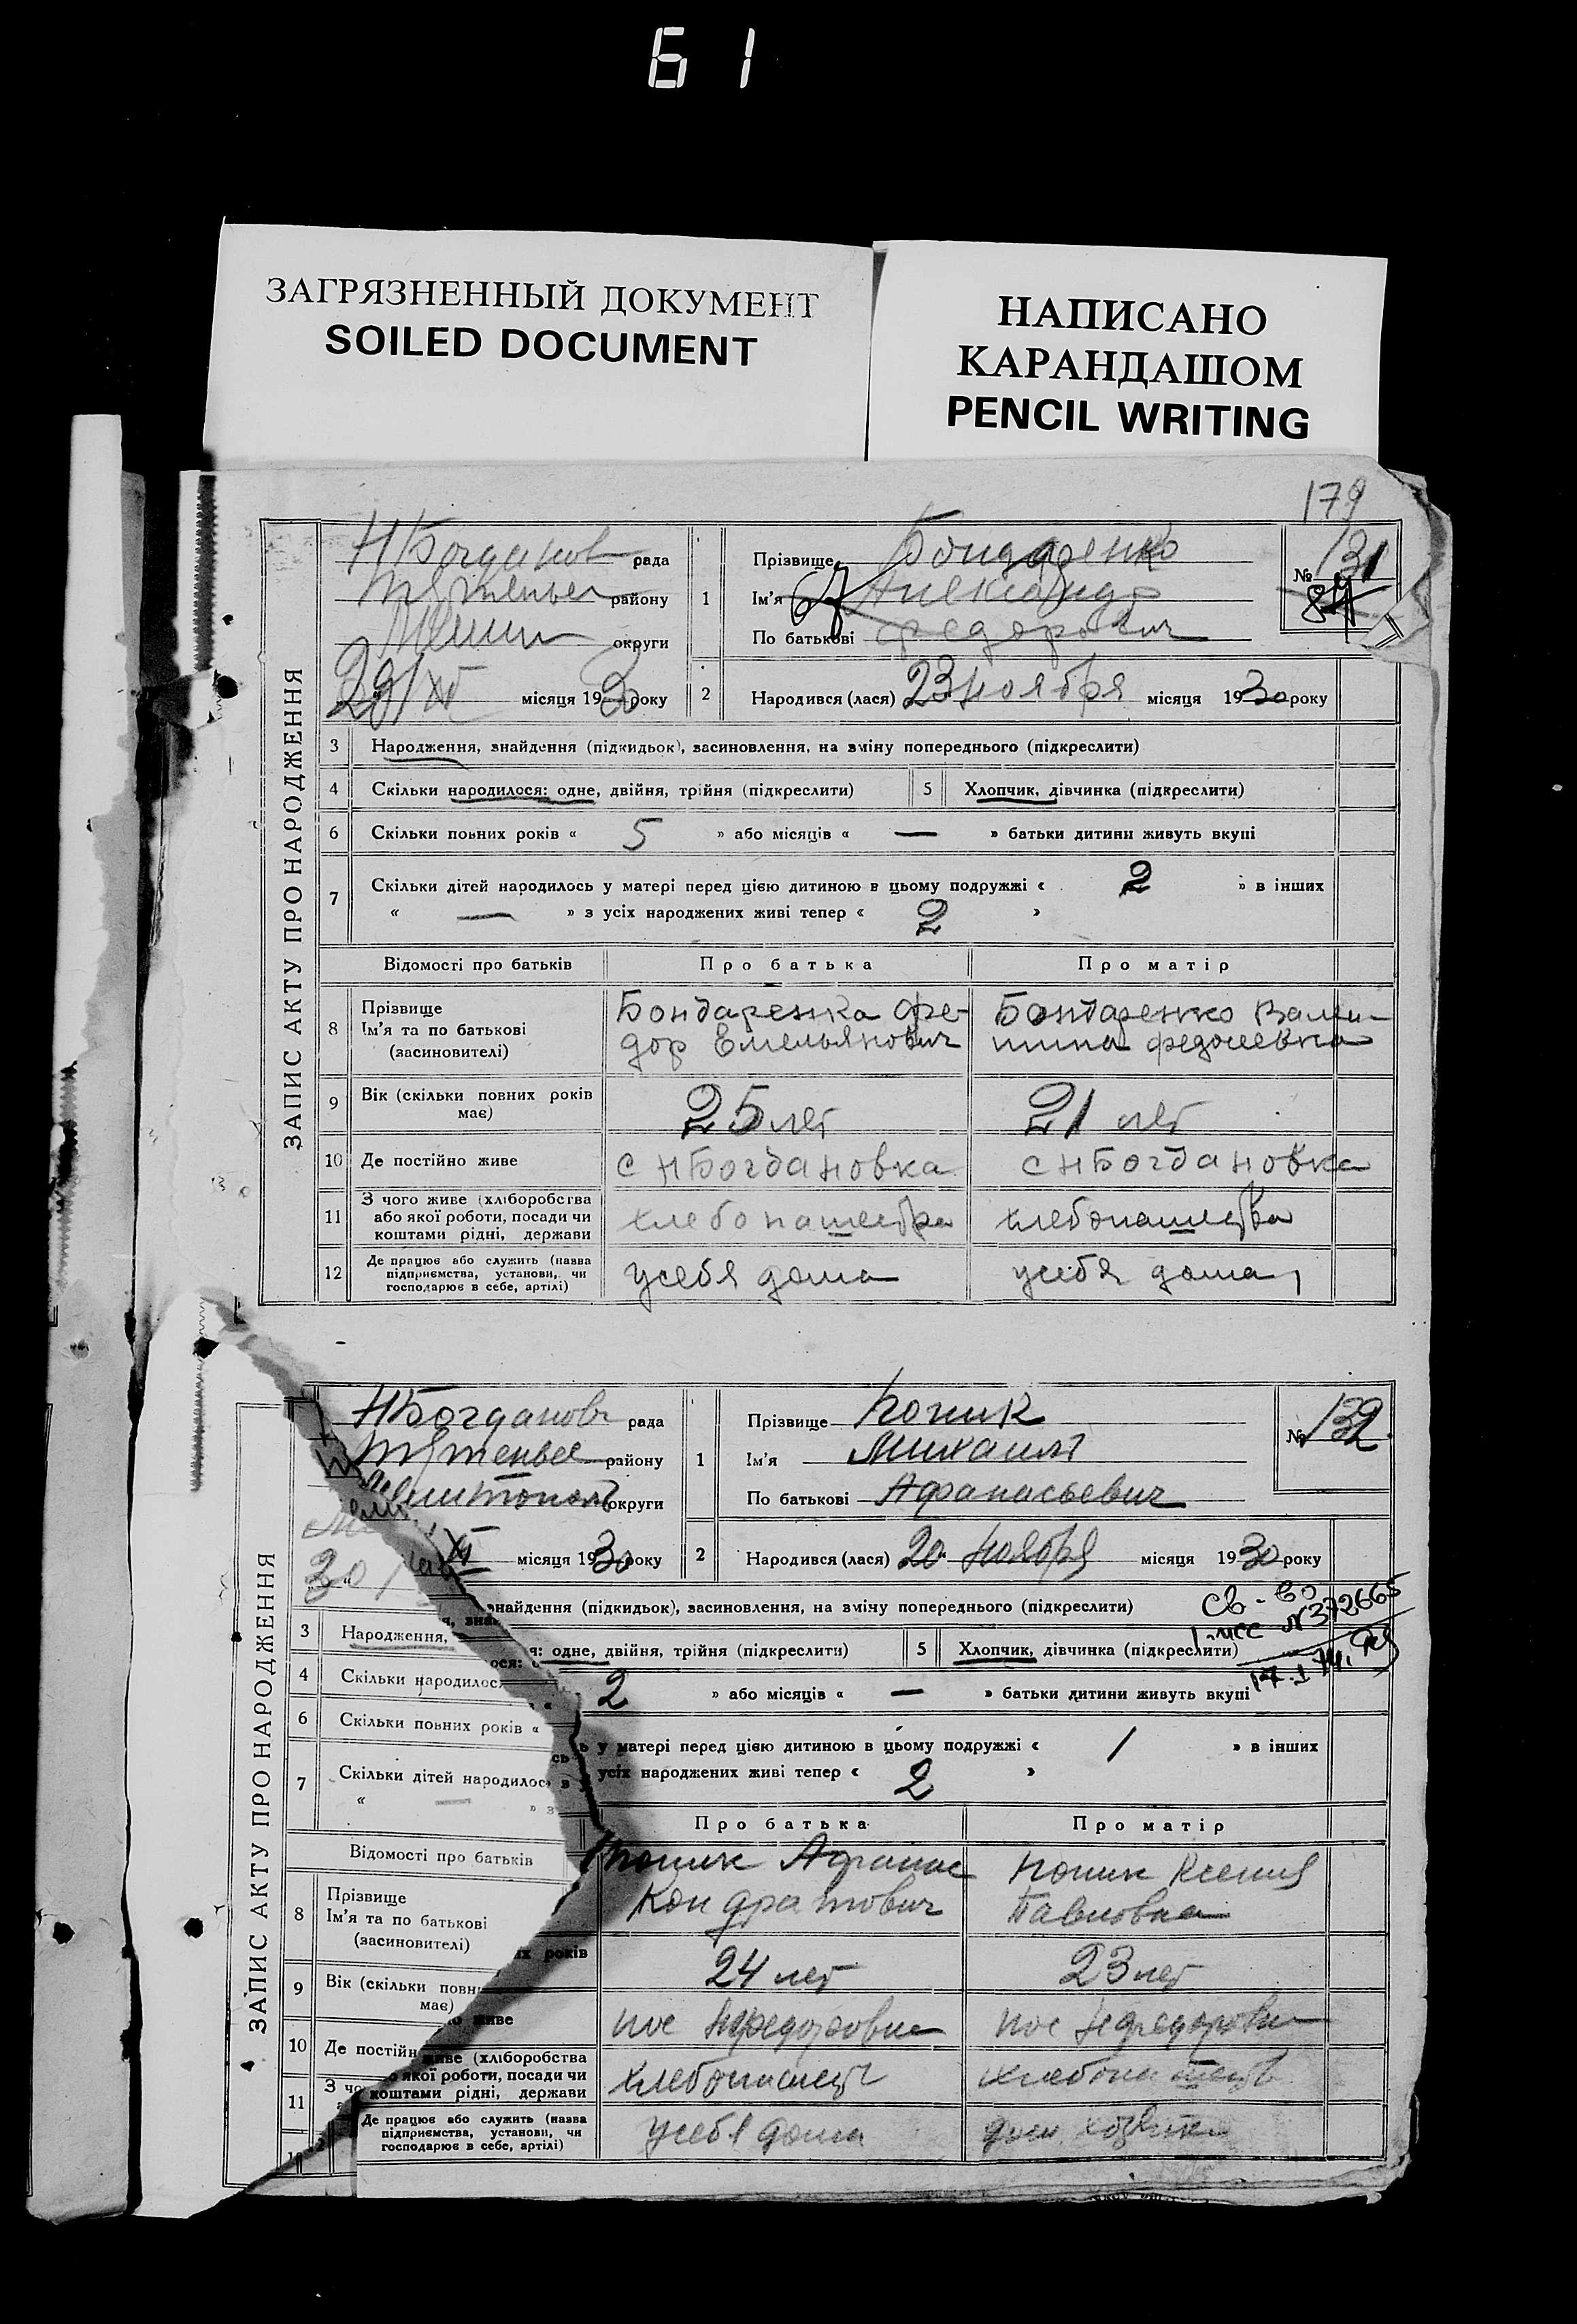 61
ЗАГРЯЗНЕННЫЙ ДОКУМЕНТ
SOILED DOCUMENT
НАПИСАНО
КАРАНДАШОМ
PENCIL WRITING
179
ЗАПИС АКТУ ПРО НАРОДЖЕННЯ
НБогданов рада
району
округи
29/XI місяця 1930 року
1 Прізвище Бондаренко
Ім'я Александр
По батькові Федорович
№ 131
84
2 Народився (лася) 23 ноября місяця 1930 року
3 Народження, знайдення (підкидьок), засиновлення, на зміну попереднього (підкреслити)
4 Скільки народилося: одне, двійня, трійня (підкреслити) 5 Хлопчик, дівчинка (підкреслити)
6 Скільки повних років « 5 » або місяців « — » батьки дитини живуть вкупі
7 Скільки дітей народилось у матері перед цією дитиною в цьому подружжі « 2 » в інших
« — » з усіх народжених живі тепер « 2 »
Відомості про батьків Про батька Про матір
8 Прізвище
Ім'я та по батькові
(засиновителі)
Бондаренка Фе-
дор Емельянович
Бондаренко Вален-
тина Федосеевна
9 Вік (скільки повних років
має)
25 лет 21 лет
10 Де постійно живе с НБогдановка с НБогдановка
11 З чого живе (хліборобства
або якої роботи, посади чи
коштами рідні, держави
хлебопашества хлебопашества
12 Де працює або служить (назва
підприємства, установи, чи
господарює в себе, артілі)
усебя дома усебя дома
ЗАПИС АКТУ ПРО НАРОДЖЕННЯ
НБогданов рада
району
округи
30 XI місяця 1930 року
1 Прізвище Попик
Ім'я Михаил
По батькові Афанасьевич
№ 132
2 Народився (лася) 20 ноября місяця 1930 року
знайдення (підкидьок), засиновлення, на зміну попереднього (підкреслити)
Св-во
N372665
17.I.74.
3 Народження,
одне, двійня, трійня (підкреслити) 5 Хлопчик, дівчинка (підкреслити)
4 Скільки народилос
2 » або місяців « — » батьки дитини живуть вкупі
6 Скільки повних років «
у матері перед цією дитиною в цьому подружжі « 1 » в інших
7 Скільки дітей народилос
усіх народжених живі тепер « 2 »
Про батька Про матір
Відомості про батьків
8 Прізвище
Ім'я та по батькові
(засиновителі)
Попик Афанас
Кондратович
Попик Ксения
Павловна
9 Вік (скільки повн
має)
24 лет 23 лет
10 Де постійн
живе
пос пос
11 З чо
живе (хліборобства
якої роботи, посади чи
коштами рідні, держави
хлебопашест хлебопашест
Де працює або служить (назва
підприємства, установи, чи
господарює в себе, артілі)
усебя дома дом